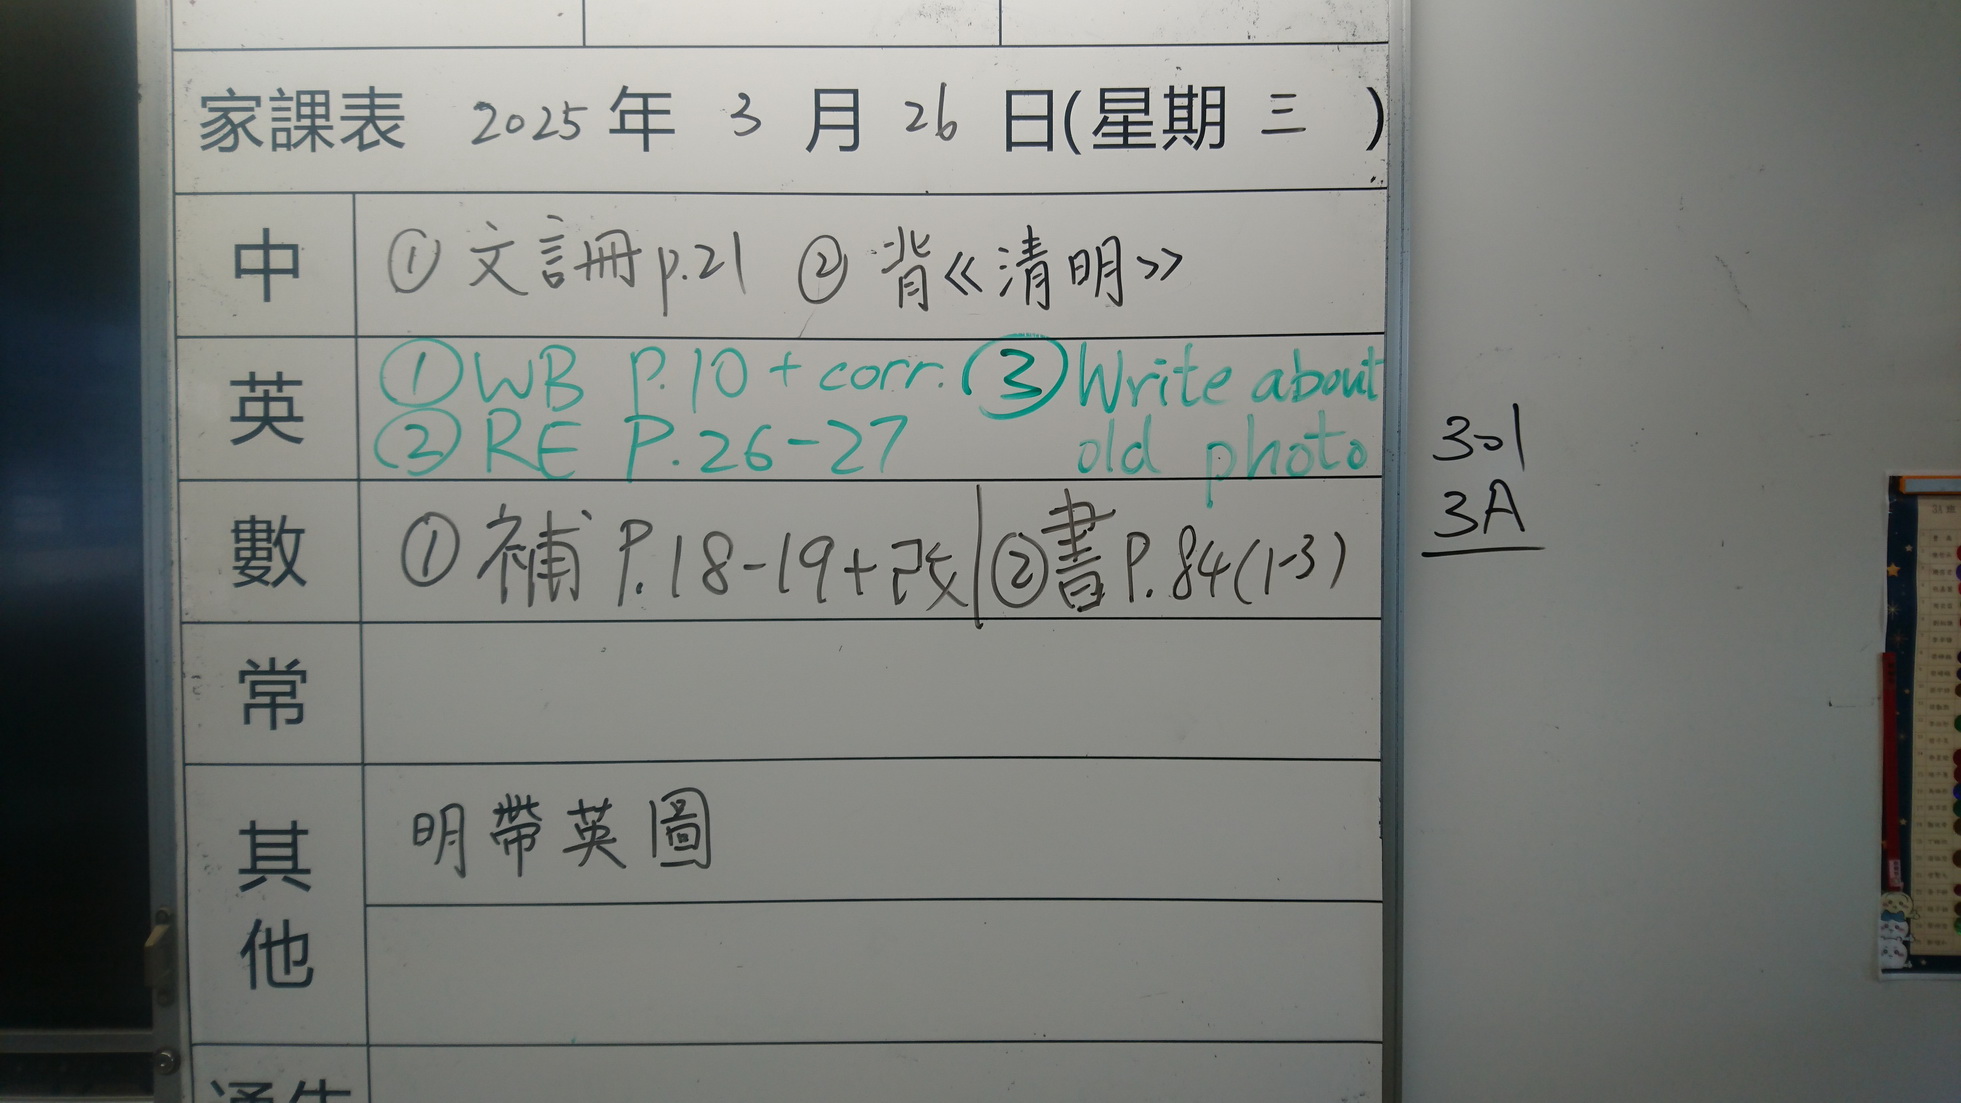 家課表 2025 年 3 月 26 日(星期 三 )
中 ① 文言冊 p.21 ② 背《清明》
英 ① WB P.10 + corr. ③ Write about
② RE P.26-27 old photo
數 ① 補 P.18-19+改 ② 書 P.84(1-3)
常
其他 明帶英圖
通告
301
3A